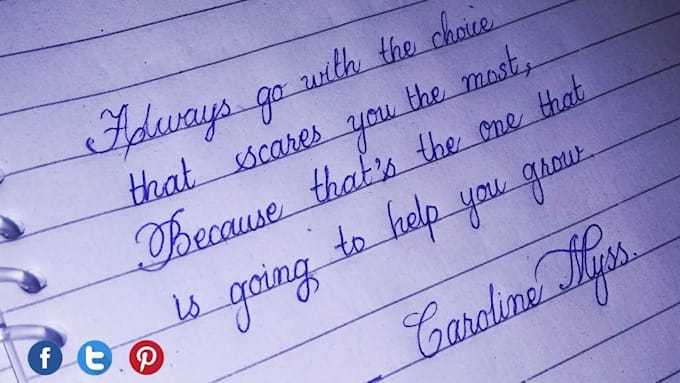 Always go with the choice
that scares you the most,
Because that's the one that
is going to help you grow.
Caroline Myss.